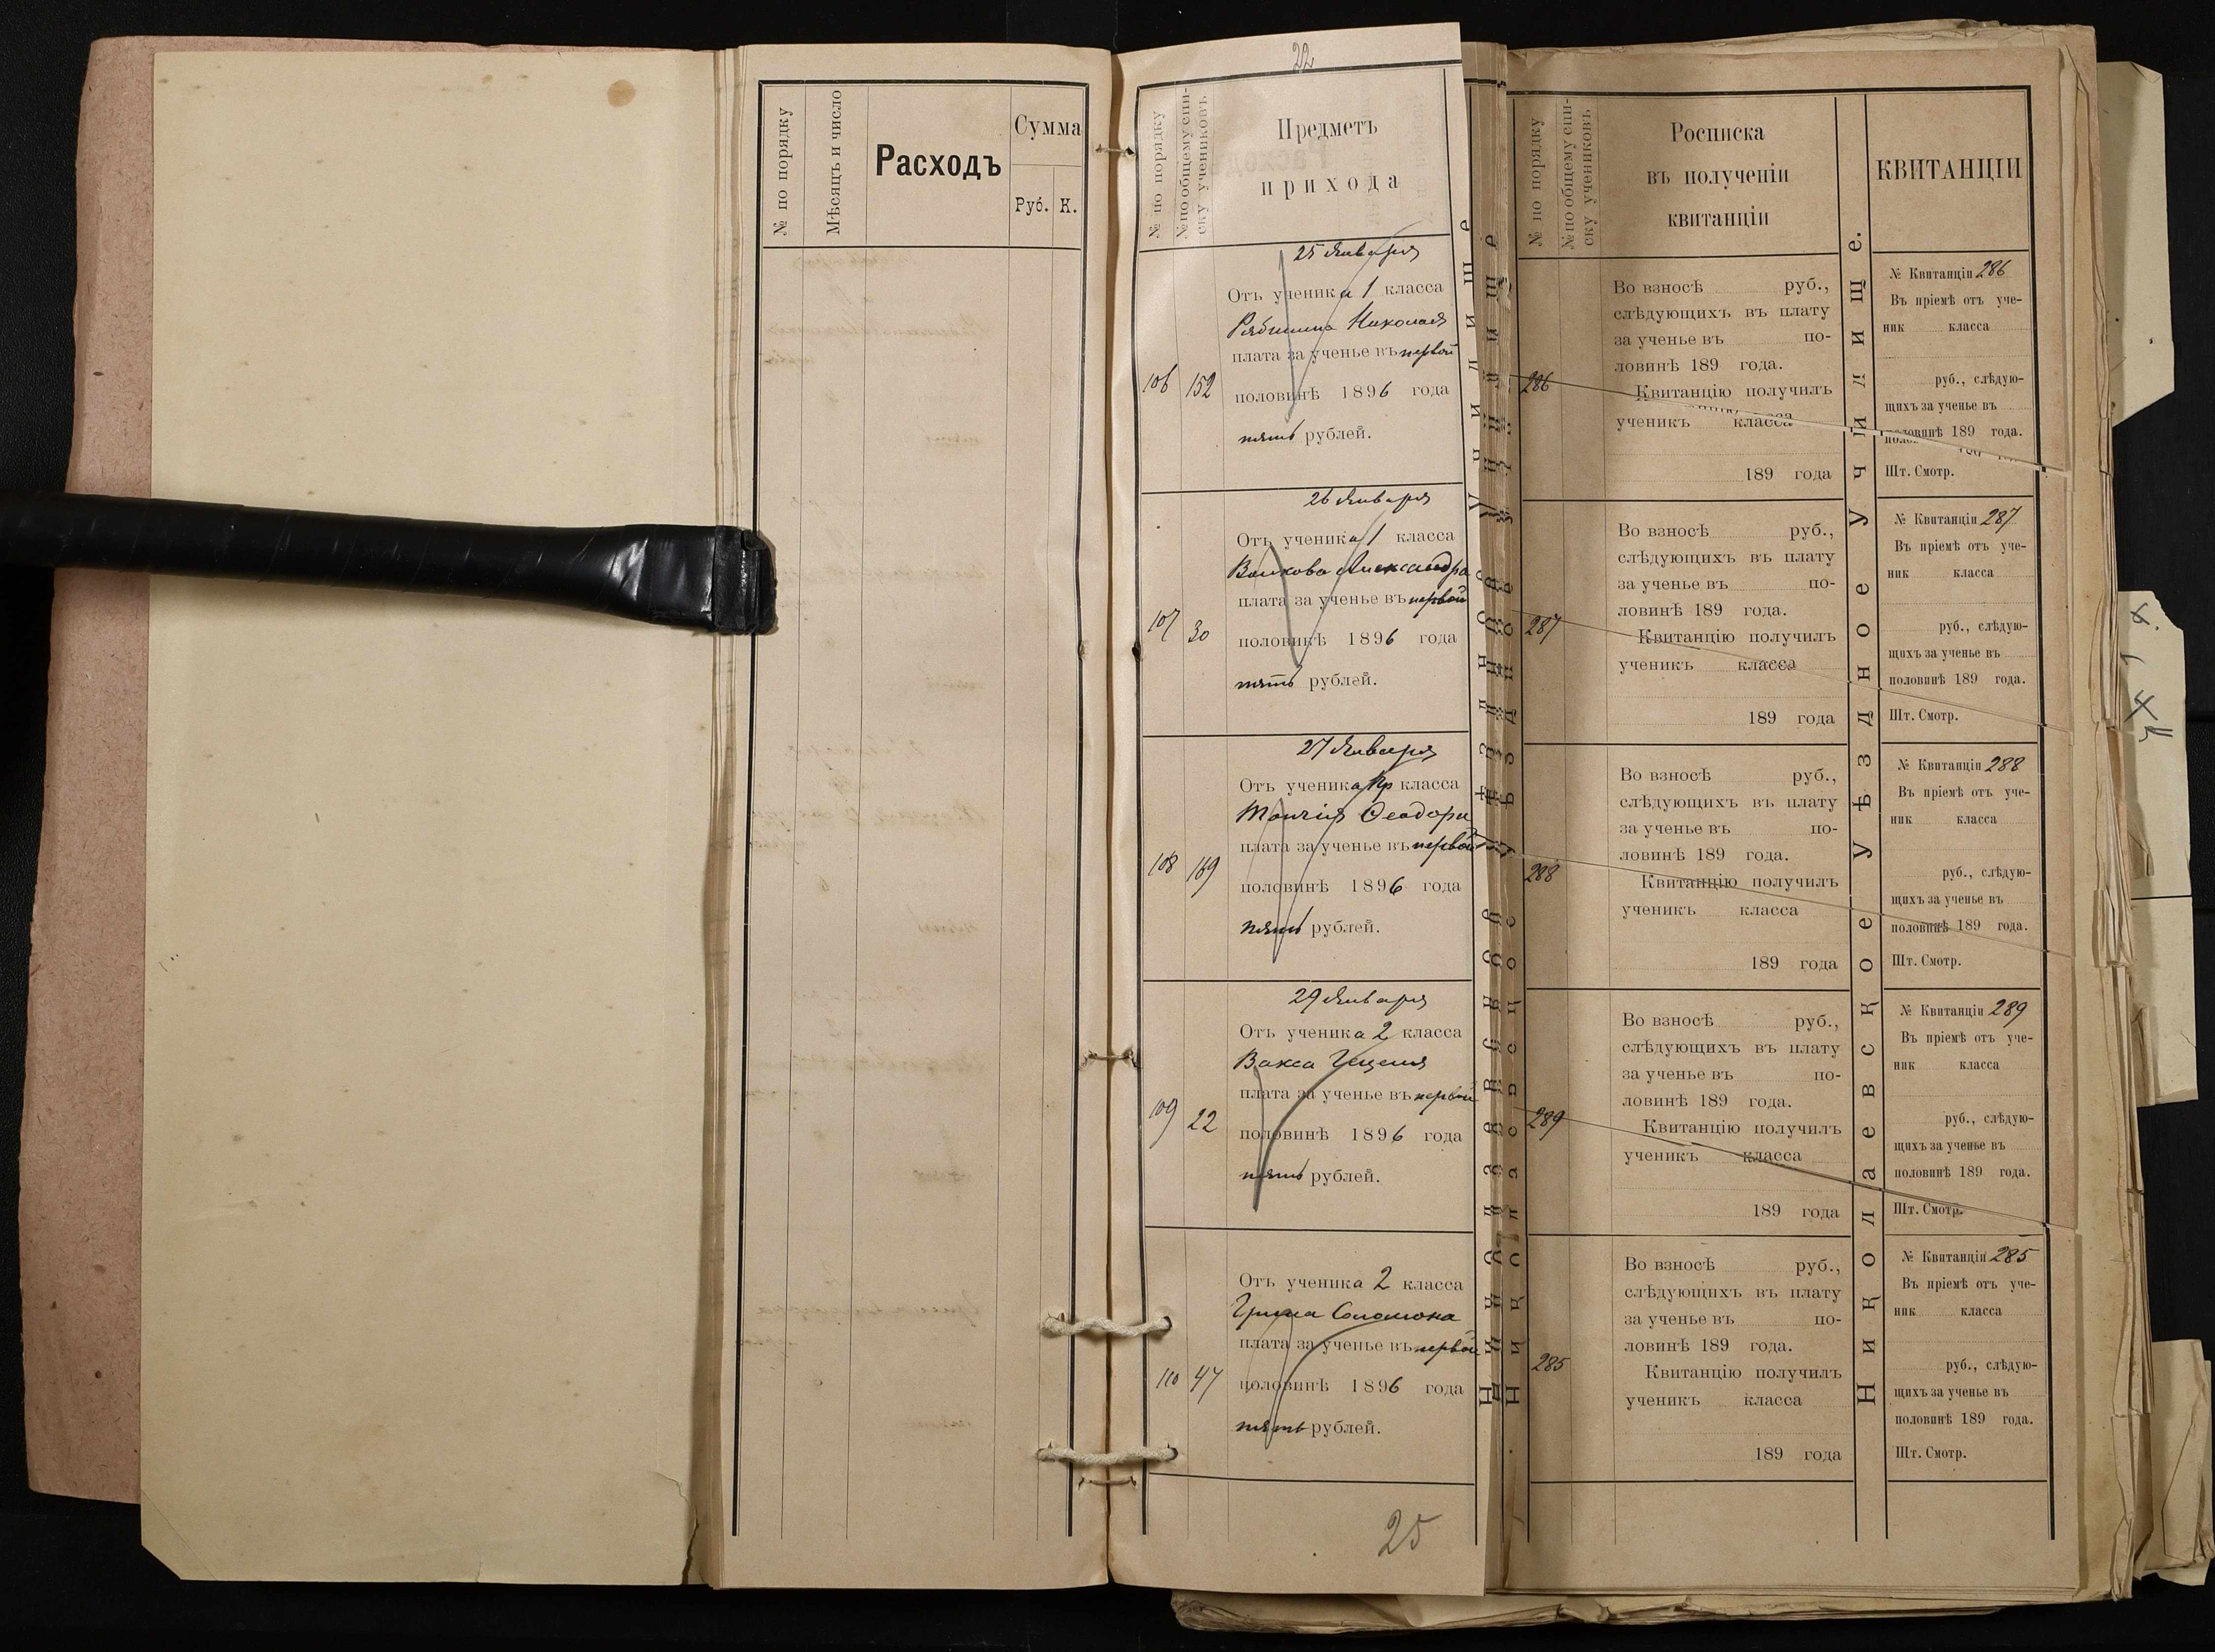 № по порядку
Мѣсяцъ и число
Расходъ
Сумма
Руб. К.
22
№ по порядку
№ по общему спи-
ску учениковъ
Предметъ
прихода
25 Января
Отъ ученика 1 класса
Рябинина Николая
плата за ученье въ первой
106 152
половинѣ 1896 года
пять рублей.
26 Января
Отъ ученика 1 класса
Волкова Александра
плата за ученье въ первой
107 30
половинѣ 1896 года
пять рублей.
27 Января
Отъ ученика пр класса
Ѳеодора
плата за ученье въ первой
108 189
половинѣ 1896 года
пять рублей.
29 Января
Отъ ученика 2 класса
Вакса
плата за ученье въ первой
109 22
половинѣ 1896 года
пять рублей.
Отъ ученика 2 класса
Соломона
плата за ученье въ первой
110 47
половинѣ 1896 года
пять рублей.
25
№ по порядку
№ по общему спи-
ску учениковъ
Росписка
въ полученіи
квитанціи
286
Во взносѣ руб.,
слѣдующихъ въ плату
за ученье въ по-
ловинѣ 189 года.
Квитанцію получилъ
ученикъ класса
189 года
287
Во взносѣ руб.,
слѣдующихъ въ плату
за ученье въ по-
ловинѣ 189 года.
Квитанцію получилъ
ученикъ класса
189 года
288
Во взносѣ руб.,
слѣдующихъ въ плату
за ученье въ по-
ловинѣ 189 года.
Квитанцію получилъ
ученикъ класса
189 года
289
Во взносѣ руб.,
слѣдующихъ въ плату
за ученье въ по-
ловинѣ 189 года.
Квитанцію получилъ
ученикъ класса
189 года
285
Во взносѣ руб.,
слѣдующихъ въ плату
за ученье въ по-
ловинѣ 189 года.
Квитанцію получилъ
ученикъ класса
189 года
Николаевское Уѣздное Училище.
КВИТАНЦІИ
№ Квитанціи 286
Въ пріемѣ отъ уче-
ник класса
руб., слѣдую-
щихъ за ученье въ
половинѣ 189 года.
Шт. Смотр.
№ Квитанціи 287
Въ пріемѣ отъ уче-
ник класса
руб., слѣдую-
щихъ за ученье въ
половинѣ 189 года.
Шт. Смотр.
№ Квитанціи 288
Въ пріемѣ отъ уче-
ник класса
руб., слѣдую-
щихъ за ученье въ
половинѣ 189 года.
Шт. Смотр.
№ Квитанціи 289
Въ пріемѣ отъ уче-
ник класса
руб., слѣдую-
щихъ за ученье въ
половинѣ 189 года.
Шт. Смотр.
№ Квитанціи 285
Въ пріемѣ отъ уче-
ник класса
руб., слѣдую-
щихъ за ученье въ
половинѣ 189 года.
Шт. Смотр.